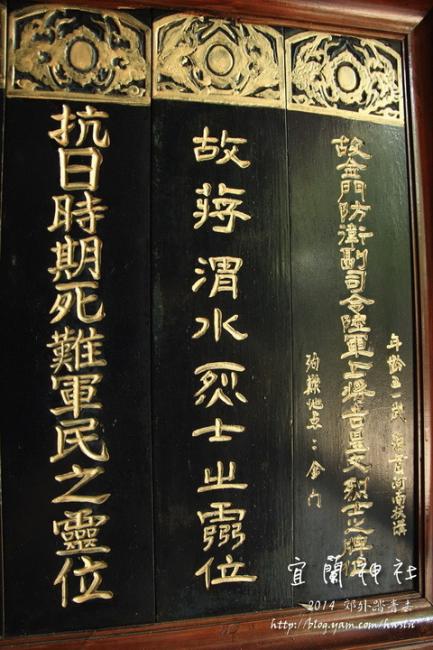 年齡五一歲 籍貫河南扶溝
故金門防衛副司令陸軍上將吉星文烈士之牌位
殉職地点：金门
故蔣渭水烈士之靈位
抗日時期死難軍民之靈位
宜蘭神社
2014 郊外踏青去